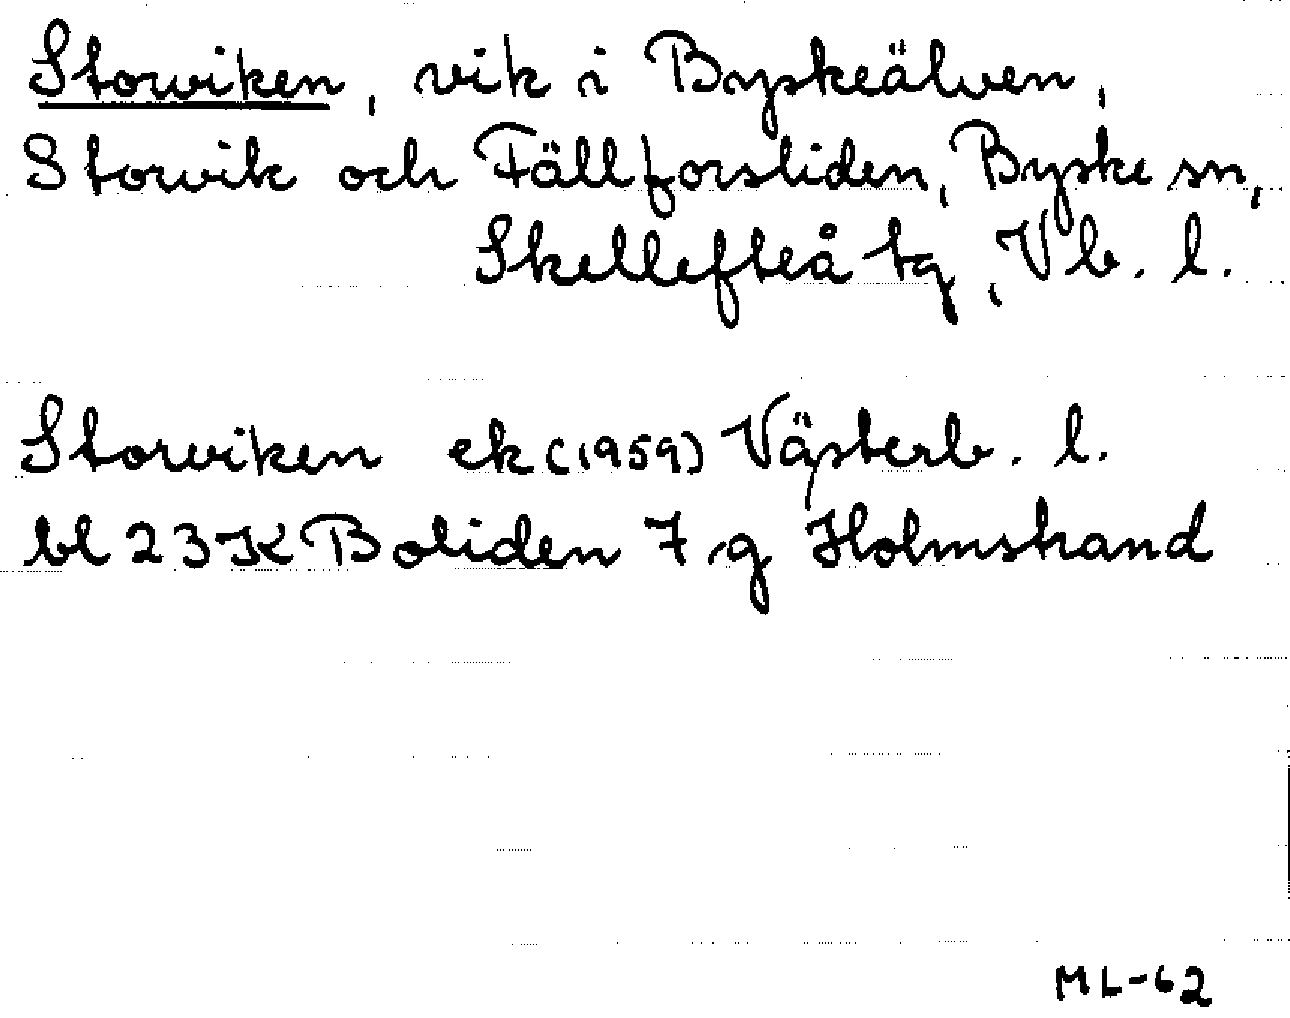 Storviken, vik i Byskeälven,
Storvik och Fällforsliden, Byske sn,
Skellefteå tg, Vb. l.
Storviken ek (1959) Västerb. l.
bl 23 K Boliden 7 g Holmstrand
ML-62